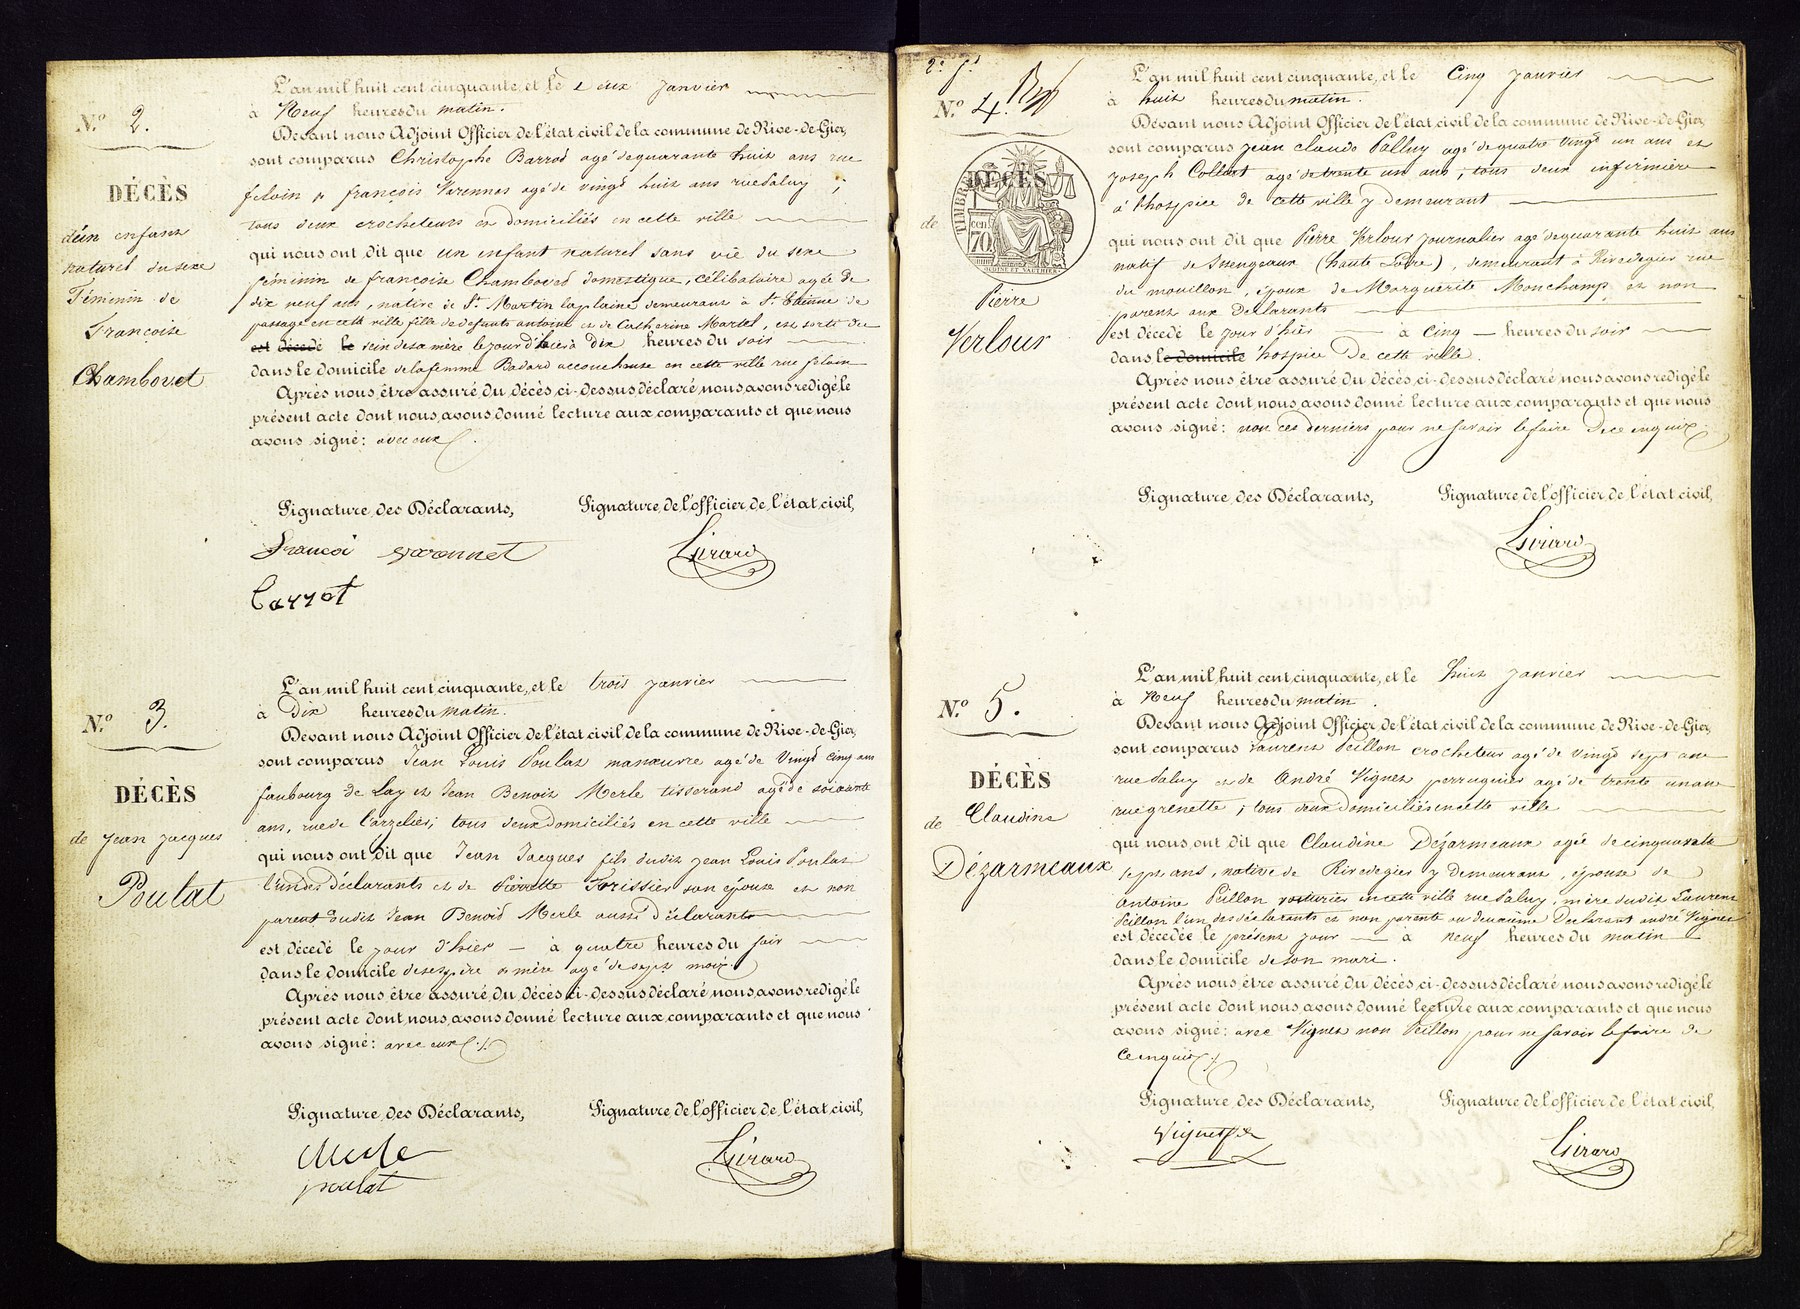 L'an mil huit cent cinquante, et le deux janvier
à Neuf heures du matin.
N.º 2.
Devant nous Adjoint Officier de l'état civil de la commune de Rive-de-Gier,
sont comparus Christophe Barrod agé de quarante huit ans rue
DÉCÈS
feloin & françois Varennes agé de vingt huit ans rue Paluy ;
tous deux crocheteurs et domiciliés en cette ville
d'un enfant
naturel du sexe
Féminin de
Françoise
Chambovet
qui nous ont dit que un enfant naturel sans vie du sexe
féminin de françoise Chambovet domestique, célibataire agée de
dix neuf ans, native de St. Martin laplaine demeurant à St. Etienne de
passage en cette ville fille de défunts antoine et de Catherine Martel, est sorti du
est décedé le sein de sa mère le jour d'hier à Dix heures du soir
dans le domicile de la femme Badard accoucheuse en cette ville rue feloin
Après nous être assuré du décès ci-dessus déclaré nous avons redigé le
présent acte dont nous avons donné lecture aux comparants et que nous
avons signé: avec eux
Signature des Déclarants, Signature de l'officier de l'état civil,
Girard
L'an mil huit cent cinquante, et le trois janvier
à Dix heures du matin.
N.º 3.
Devant nous Adjoint Officier de l'état civil de la commune de Rive-de-Gier,
sont comparus Jean Louis Poulat manœuvre agé de Vingt cinq ans
DÉCÈS
faubourg de Lay et Jean Benoit Merle tisserand agé de soixante
ans, rue de ; tous deux domiciliés en cette ville
de jean jacques
Poulat
qui nous ont dit que Jean Jacques fils dudit jean Louis Poulat
l'un des déclarants et de Pierrette Forissier son épouse et non
parent dudit Jean Benoit Merle aussi déclarant
est décedé le jour d'hier à quatre heures du soir
dans le domicile de ses père & mère agé de sept mois.
Après nous être assuré du décès ci-dessus déclaré nous avons redigé le
présent acte dont nous avons donné lecture aux comparants et que nous
avons signé: avec eux
Signature des Déclarants, Signature de l'officier de l'état civil,
Merle Girard
poulat
L'an mil huit cent cinquante, et le Cinq janvier
à huit heures du matin.
N.º 4.
Devant nous Adjoint Officier de l'état civil de la commune de Rive-de-Gier,
sont comparus jean claude Palluy agé de quatre vingt un ans et
DÉCÈS
joseph Collet agé de trente un ans, tous deux infirmiers
à l'hospice de cette ville y demeurant
TIMBRE
70
de
Pierre
Verlour
qui nous ont dit que Pierre Verlour journalier agé de quarante huit ans
natif de (haute Loire), demeurant à Rivedegier rue
du mouillon, époux de Marguerite Monchamp, et non
parent aux déclarants
est décédé le jour d'hier à cinq heures du soir
dans le domicile l'hospice de cette ville.
Après nous être assuré du décès ci-dessus déclaré nous avons redigé le
présent acte dont nous avons donné lecture aux comparants et que nous
avons signé: non ces derniers pour ne savoir le faire de ce enquis.
Signature des Déclarants, Signature de l'officier de l'état civil,
Girard
L'an mil huit cent cinquante, et le huit janvier
à Neuf heures du matin.
N.º 5.
Devant nous Adjoint Officier de l'état civil de la commune de Rive-de-Gier,
sont comparus Laurent Peillon crocheteur agé de vingt sept ans
DÉCÈS
rue Paluy et de André Vignet perruquier agé de trente un ans
rue grenette ; tous deux domiciliés en cette ville
de Claudine
Dézarmeaux
qui nous ont dit que Claudine Dézarmeaux agée de cinquante
sept ans, native de Rivedegier y demeurant, épouse de
antoine Peillon voiturier en cette ville rue Paluy, mère dudit Laurent
Peillon l'un des déclarants et non parente au deuxième Déclarant andré Vignet
est décedée le présent jour à neuf heures du matin
dans le domicile de son mari.
Après nous être assuré du décès ci-dessus déclaré nous avons redigé le
présent acte dont nous avons donné lecture aux comparants et que nous
avons signé: avec Vignet non Peillon pour ne savoir le faire de
ce enquis
Signature des Déclarants, Signature de l'officier de l'état civil,
Girard